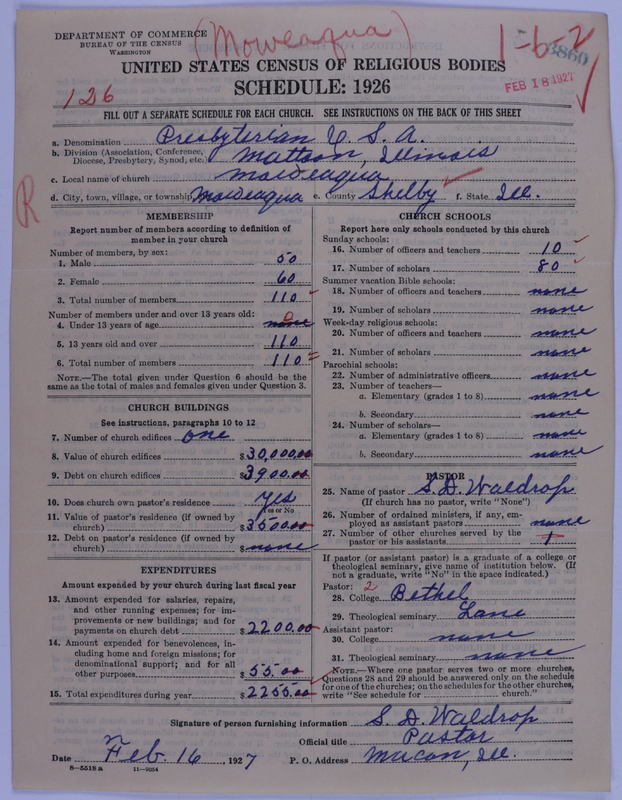 DEPARTMENT OF COMMERCE
BUREAU OF THE CENSUS
WASHINGTON
(Moweaqua)
1-6-2
3860
FEB 18 1927
UNITED STATES CENSUS OF RELIGIOUS BODIES
SCHEDULE: 1926
126
FILL OUT A SEPARATE SCHEDULE FOR EACH CHURCH. SEE INSTRUCTIONS ON THE BACK OF THIS SHEET
a. Denomination Presbyterian U. S. A.
b. Division (Association, Conference, Diocese, Presbytery, Synod, etc.) Mattoon, Illinois
c. Local name of church Moweaqua
d. City, town, village, or township Moweaqua e. County Shelby f. State Ill.
R
MEMBERSHIP
Report number of members according to definition of
member in your church
Number of members, by sex:
1. Male 50
2. Female 60
3. Total number of members 110
Number of members under and over 13 years old:
4. Under 13 years of age none 0
5. 13 years old and over 110
6. Total number of members 110
NOTE.—The total given under Question 6 should be the
same as the total of males and females given under Question 3.
CHURCH BUILDINGS
See instructions, paragraphs 10 to 12
7. Number of church edifices one
8. Value of church edifices $30,000.00
9. Debt on church edifices $3900.00
10. Does church own pastor's residence yes
Yes or No
11. Value of pastor's residence (if owned by
church) $3500.00
12. Debt on pastor's residence (if owned by
church) $none
EXPENDITURES
Amount expended by your church during last fiscal year
13. Amount expended for salaries, repairs,
and other running expenses; for im-
provements or new buildings; and for
payments on church debt $2200.00
14. Amount expended for benevolences, in-
cluding home and foreign missions; for
denominational support; and for all
other purposes $55.00
15. Total expenditures during year $2255.00
CHURCH SCHOOLS
Report here only schools conducted by this church
Sunday schools:
16. Number of officers and teachers 10
17. Number of scholars 80
Summer vacation Bible schools:
18. Number of officers and teachers none
19. Number of scholars none
Week-day religious schools:
20. Number of officers and teachers none
21. Number of scholars none
Parochial schools:
22. Number of administrative officers none
23. Number of teachers—
a. Elementary (grades 1 to 8) none
b. Secondary none
24. Number of scholars—
a. Elementary (grades 1 to 8) none
b. Secondary none
PASTOR
25. Name of pastor S. D. Waldrop
(If church has no pastor, write "None")
26. Number of ordained ministers, if any, em-
ployed as assistant pastors none
27. Number of other churches served by the
pastor or his assistants 1
If pastor (or assistant pastor) is a graduate of a college or
theological seminary, give name of institution below. (If
not a graduate, write "No" in the space indicated.)
Pastor: 2
28. College Bethel
29. Theological seminary Lane
Assistant pastor:
30. College none
31. Theological seminary none
NOTE.—Where one pastor serves two or more churches,
Questions 28 and 29 should be answered only on the schedule
for one of the churches; on the schedules for the other churches,
write "See schedule for church."
Signature of person furnishing information S. D. Waldrop
Official title Pastor
Date Feb. 16, 1927 P. O. Address Macon, Ill.
8—5518a 11—9054